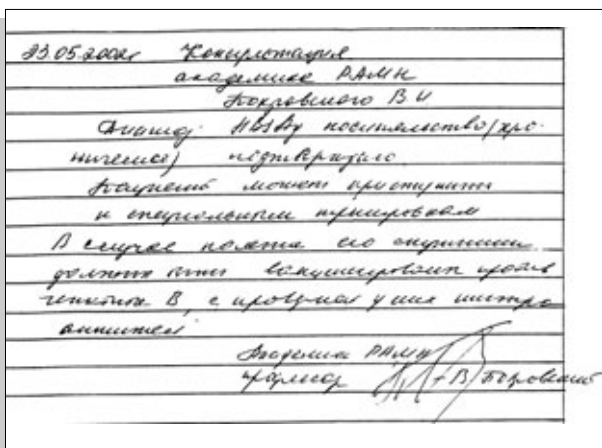 23.05.2002г Консультация
академика РАМН
Покровского В И
Диагноз: HBsAg носительство (хро-
ническое) подтверждаю.
Пациент может приступить
к специальным тренировкам
В случае полета его спутники
должны быть вакцинированы против
гепатита В, с проверкой у них титра
антител
Академик РАМН
профессор В Покровский